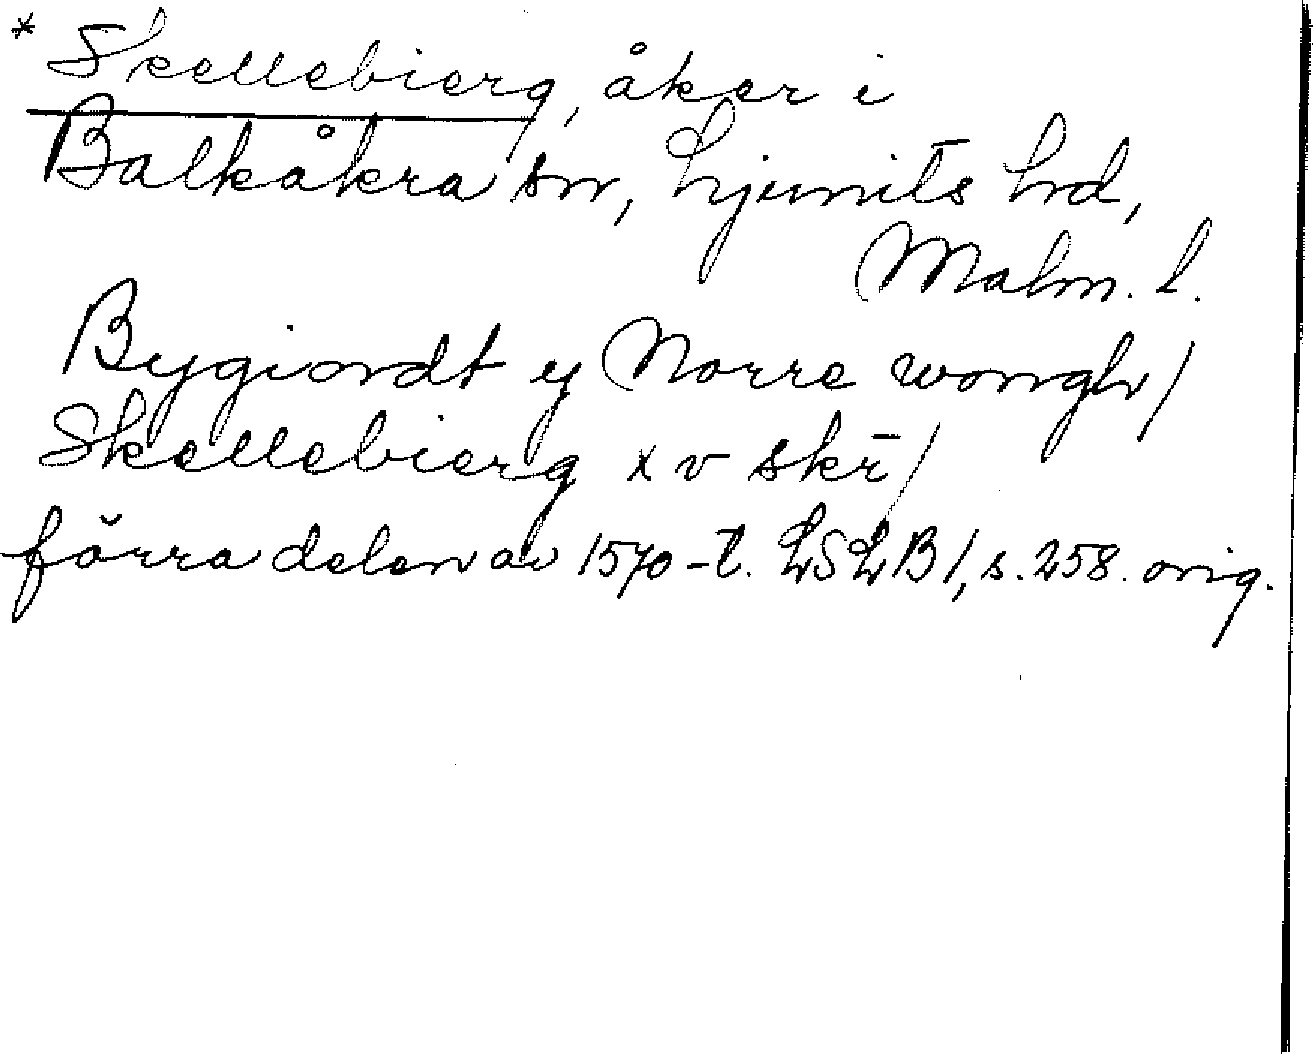 * Skellebierg, åker i
Balkåkra sn, Ljunits hd,
Malm. l.
Bygiordt y Norre wongh/
Skellebierg x v skr̄/
förra delen av 1570-t. LSLB 1, s. 258. orig.